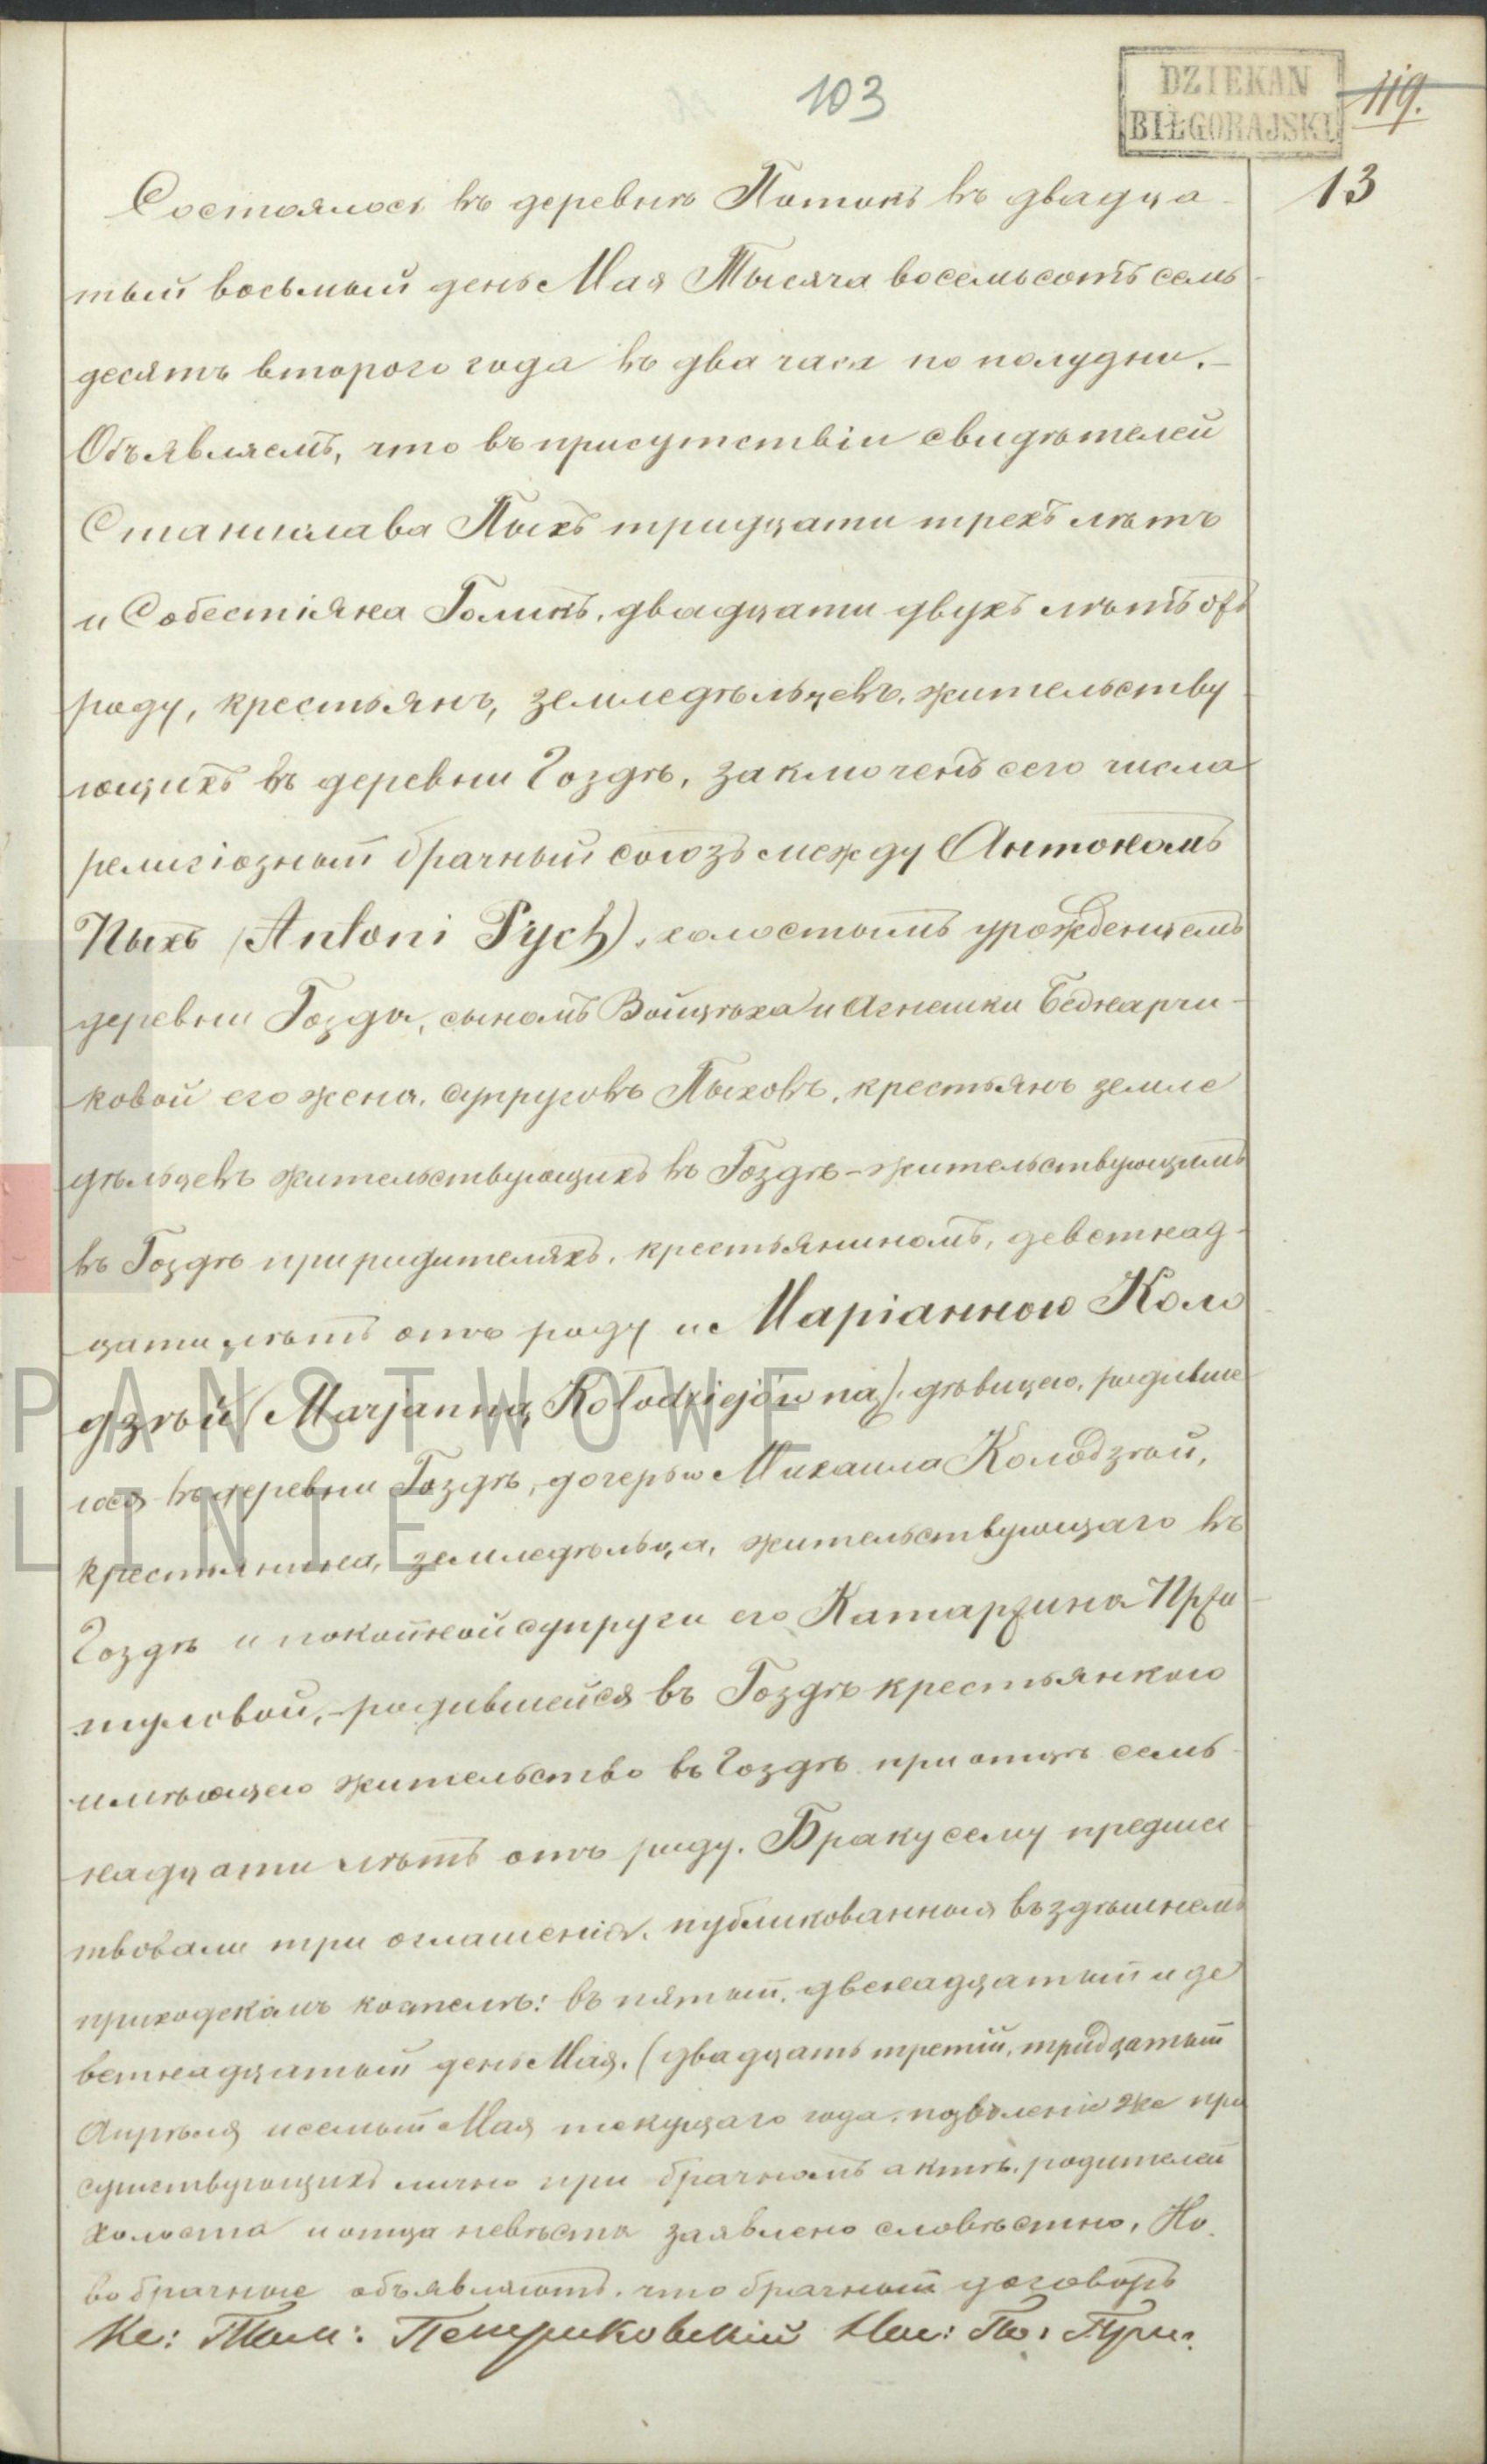 103
DZIEKAN
BIŁGORAJSKI
119.
13
Состоялось въ деревнѣ Потокъ въ двадца-
тый восьмый день Мая Тысяча восемьсотъ семь-
десятъ второго года въ два часа по полудни.-
Объявляемъ, что въ присутствіи свидѣтелей
Станислава Пыхъ тридцати трехъ лѣтъ
и Собестіяна Голикъ, двадцати двухъ лѣтъ отъ
роду, крестьянъ, земледѣльцевъ, жительству-
ющихъ въ деревни Гоздѣ, заключенъ сего числа
религіозный брачный союзъ между Антономъ
Пыхъ (Antoni Pych), холостымъ урожденцемъ
деревни Гозда, сыномъ Войцѣха и Агнешки Беднарчи-
ковой его жена, супруговъ Пыховъ, крестьянъ земле
дѣльцевъ жительствующихъ въ Гоздѣ - жительствующимъ
въ Гоздѣ при родителяхъ, крестьяниномъ, девятнад-
цати лѣтъ отъ роду и Маріанною Коло
дзѣй (Marjanną Kołodziejówną), дѣвицею, родивше
юся въ деревни Гоздѣ, дочерью Михаила Колодзѣй,
крестьянина, земледѣльца, жительствующаго въ
Гоздѣ и покойной супруги его Катаржина Пржи
туловой, родившейся въ Гоздѣ крестьянкою
имѣющею жительство въ Гоздѣ при отцѣ семь-
надцати лѣтъ отъ роду. Браку сему предше
твовали три оглашенія, публикованныя въ здѣшнемъ
приходскамъ костелѣ: въ пятый, двенадцатый и де
вятнадцатый день Мая. (двадцать третій, тридцатый
Апрѣля и семый Мая текущаго года, позволеніе же при
сутствующихъ лично при брачномъ актѣ, родителей
холоста и отца невѣста заявлено словѣстно, Но-
вобрачные объявляютъ, что брачный договоръ
PAŃSTWOWE
LINIE